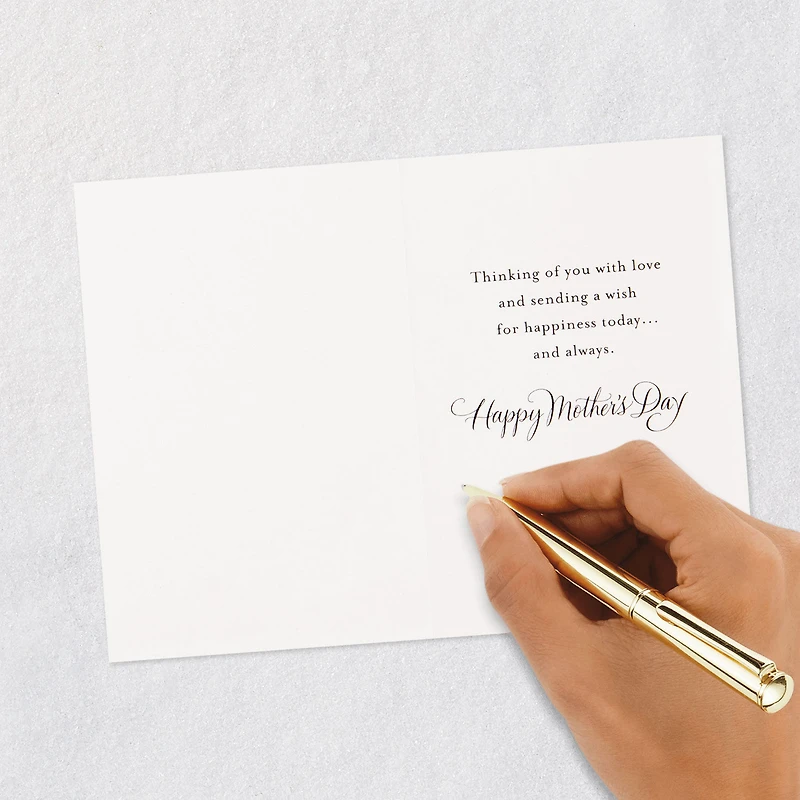 Thinking of you with love
and sending a wish
for happiness today...
and always.
Happy Mother's Day